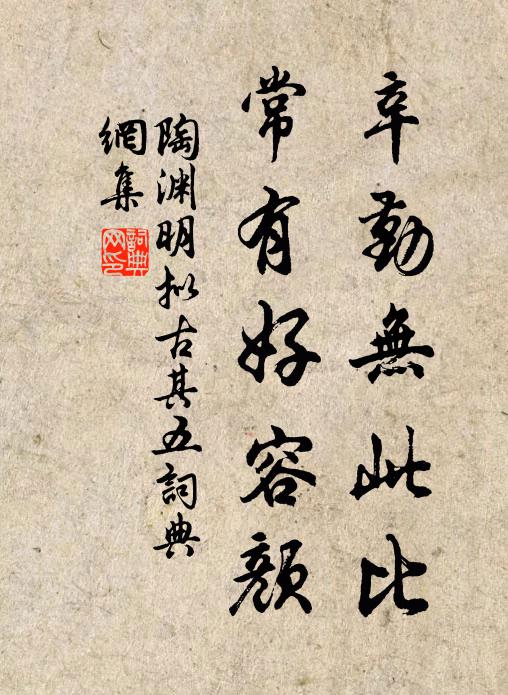 辛勤無此比
常有好容顏
陶渊明拟古其五詞典
網集
詞典
网印